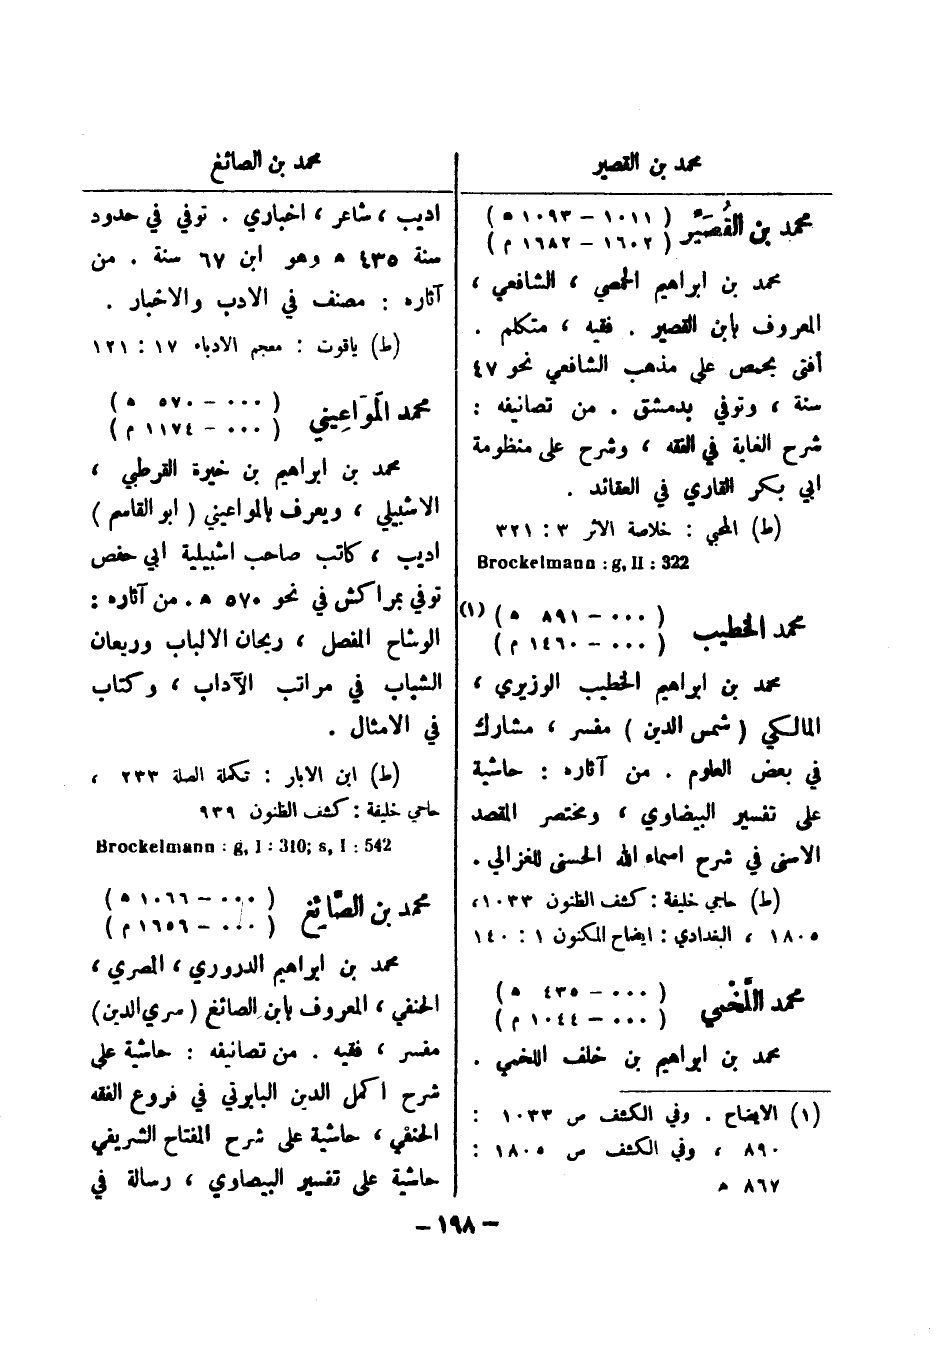 محمد بن القصير
محمد بن القُصَيَّر ( ١٠١١ – ١٠٩٣ ه )
( ١٦٠٢ – ١٦٨٢ م )
محمد بن ابراهيم الحمصي ، الشافعي ،
المعروف بابن القصير . فقيه ، متكلم .
أفتى بحمص على مذهب الشافعي نحو ٤٧
سنة ، وتوفي بدمشق . من تصانيفه :
شرح الغاية في الفقه ، وشرح على منظومة
ابي بكر القاري في العقائد .
(ط) المحبي : خلاصة الاثر ٣ : ٣٢١
Brockelmann : g, II : 322
محمد الخطيب ( ٠٠٠ – ٨٩١ ه ) (١)
( ٠٠٠ – ١٤٦٠ م )
محمد بن ابراهيم الخطيب الوزيري ،
المالكي ( شمس الدين ) مفسر ، مشارك
في بعض العلوم . من آثاره : حاشية
على تفسير البيضاوي ، ومختصر المقصد
الاسنى في شرح اسماء الله الحسنى للغزالي .
(ط) حاجي خليفة : كشف الظنون ١٠٣٣ ،
١٨٠٥ ، البغدادي : ايضاح المكنون ١ : ١٤٠
محمد اللَّخْمي ( ٠٠٠ – ٤٣٥ ه )
( ٠٠٠ – ١٠٤٤ م )
محمد بن ابراهيم بن خلف اللخمي .
(١) الايضاح . وفي الكشف ص ١٠٣٣ :
٨٩٠ ، وفي الكشف ص ١٨٠٥ :
٨٦٧ ه
محمد بن الصائغ
اديب ، شاعر ، اخباري . توفي في حدود
سنة ٤٣٥ ه وهو ابن ٦٧ سنة . من
آثاره : مصنف في الادب والاخبار .
(ط) ياقوت : معجم الادباء ١٧ : ١٢١
محمد المَوَاعِيني ( ٠٠٠ – ٥٧٠ ه )
( ٠٠٠ – ١١٧٤ م )
محمد بن ابراهيم بن خيرة القرطبي ،
الاشبيلي ، ويعرف بالمواعيني ( ابو القاسم )
اديب ، كاتب صاحب اشبيلية ابي حفص
توفي بمراكش في نحو ٥٧٠ ه . من آثاره :
الوشاح المفصل ، ريحان الالباب وريعان
الشباب في مراتب الآداب ، وكتاب
في الامثال .
(ط) ابن الابار : تكملة الصلة ٢٣٣ ،
حاجي خليفة : كشف الظنون ٩٣٩
Brockelmann : g, I : 310; s, I : 542
محمد بن الصَّائِغ ( ٠٠٠ – ١٠٦٦ ه )
( ٠٠٠ – ١٦٥٦ م )
محمد بن ابراهيم الدروري ، المصري ،
الحنفي ، المعروف بابن الصائغ ( سري الدين )
مفسر ، فقيه . من تصانيفه : حاشية على
شرح اكمل الدين البابرتي في فروع الفقه
الحنفي ، حاشية على شرح المفتاح الشريفي
حاشية على تفسير البيضاوي ، رسالة في
– ١٩٨ –